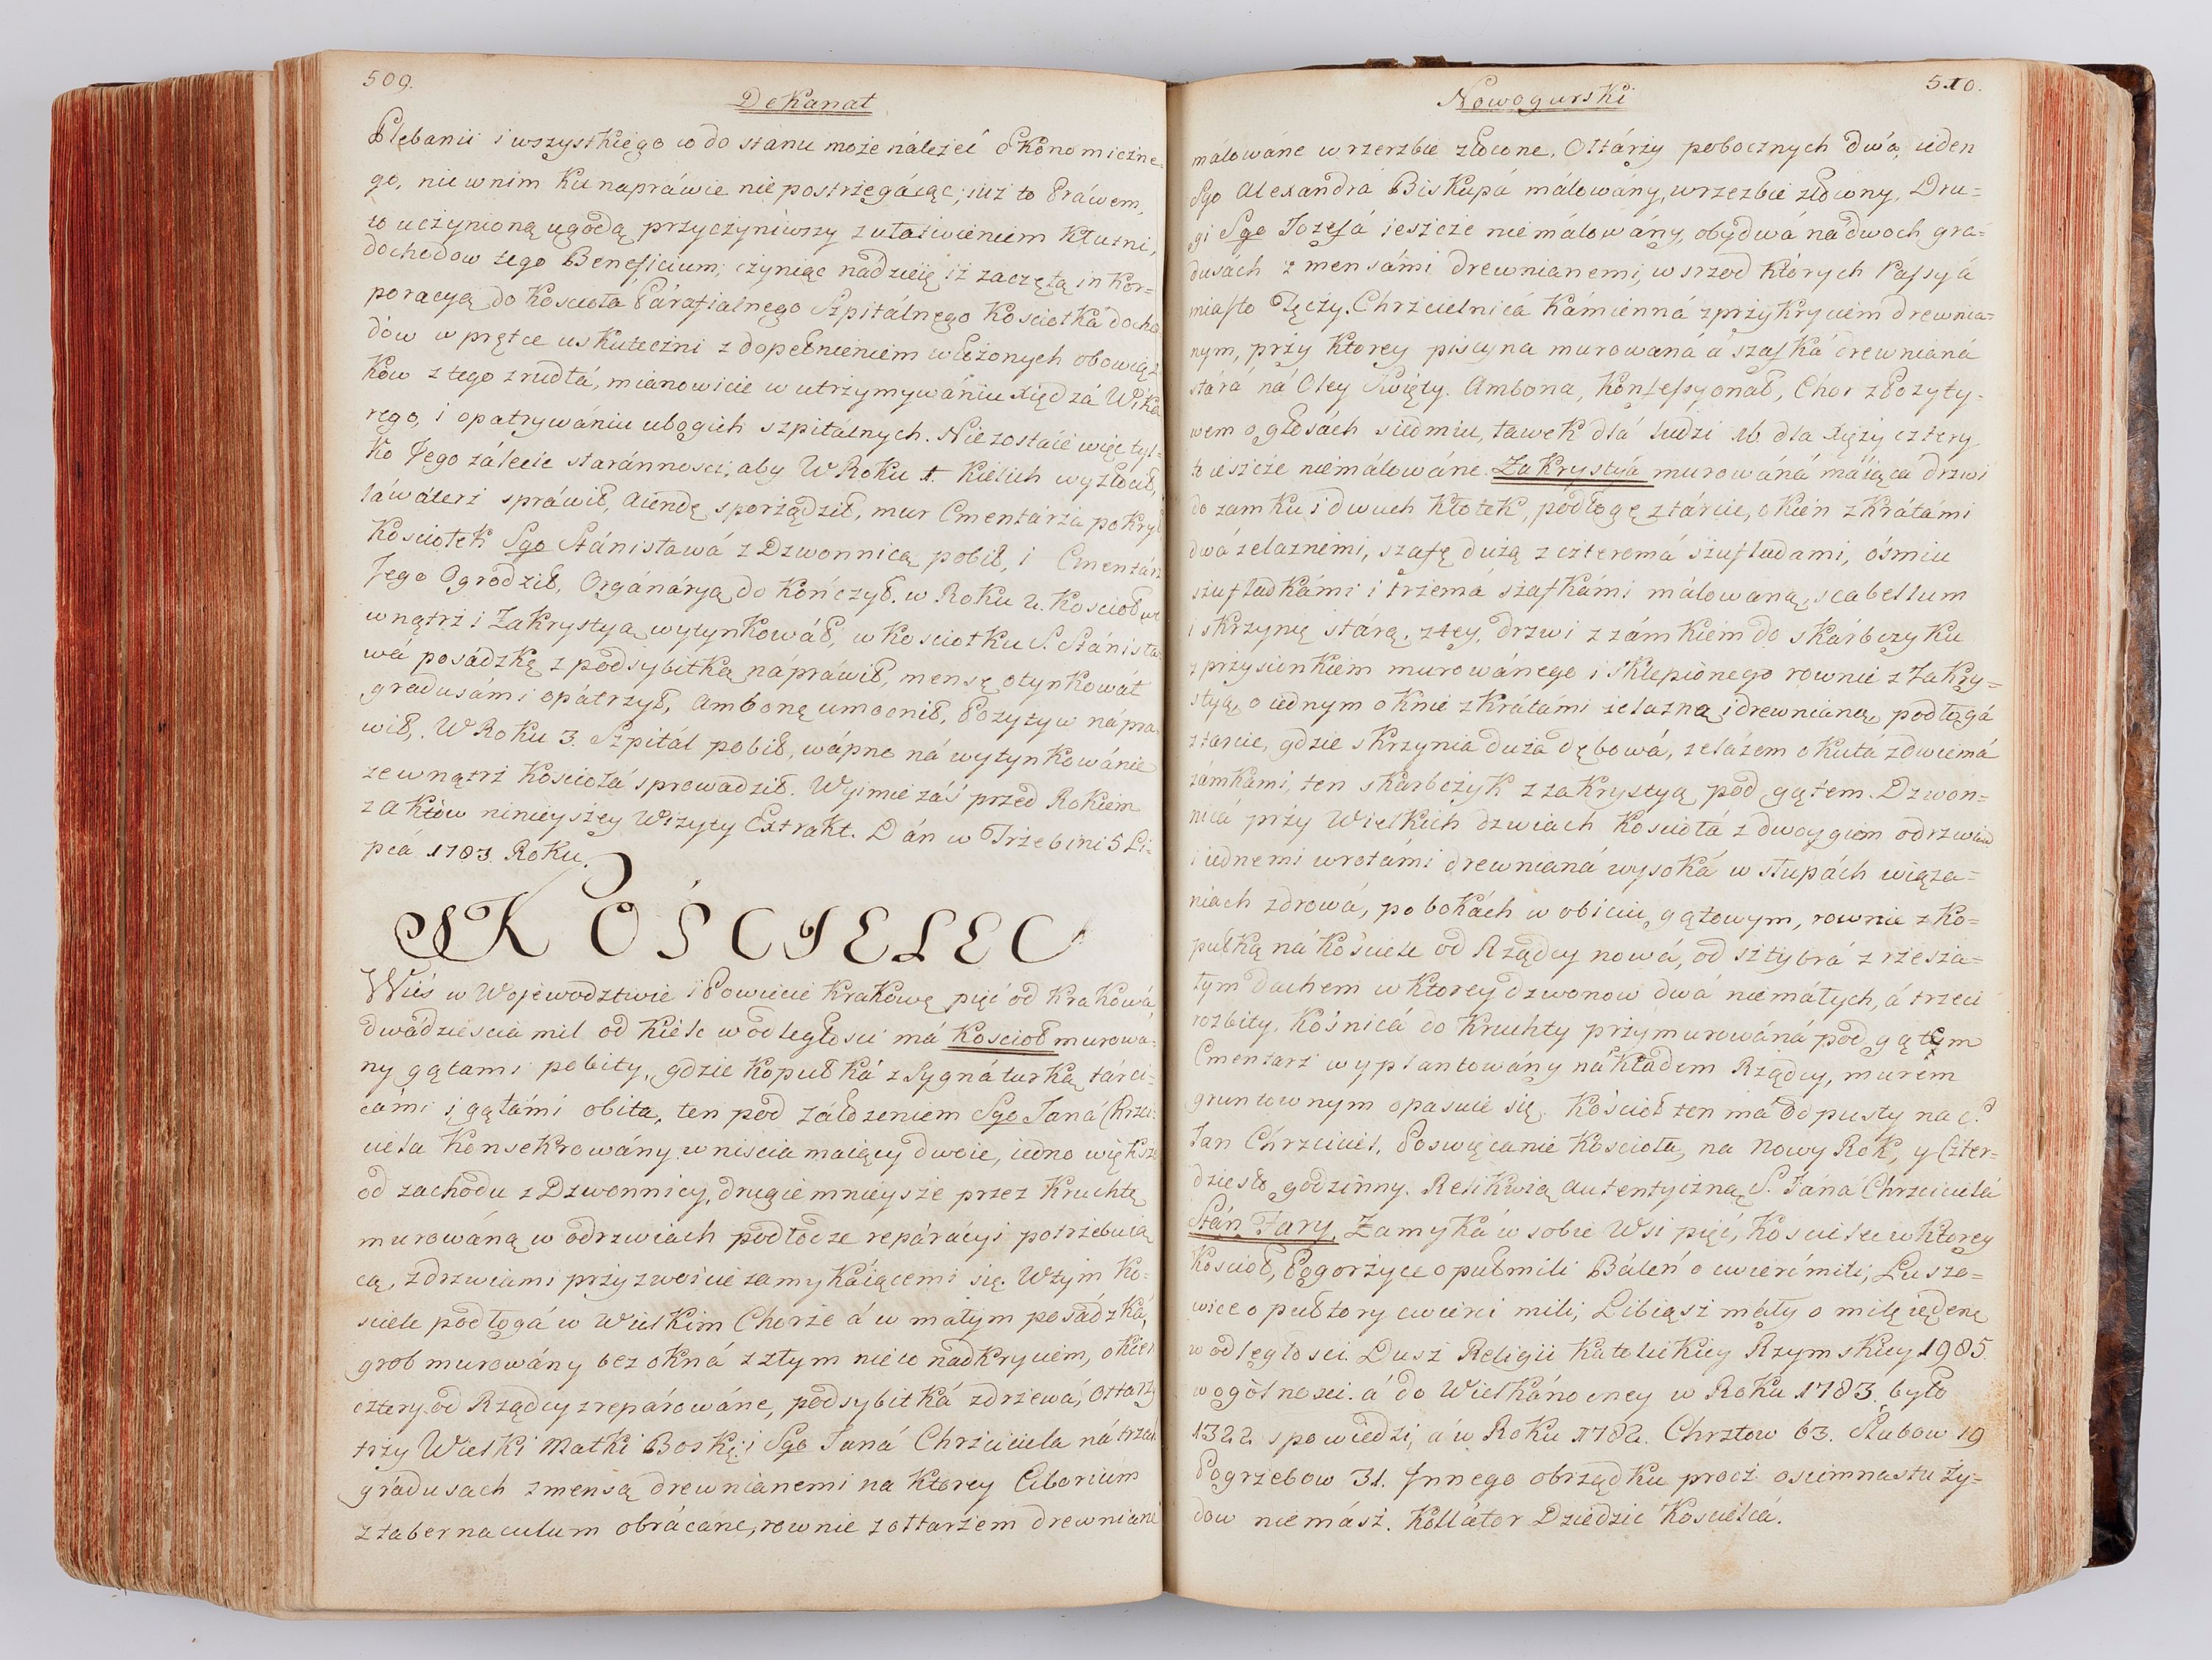 509.
Dekanat
Plebanii i wszystkiego co do stanu może náleżeć Ekonomiczne=
go, nic wnim ku napráwie nie postrzegáiąc; iuż to Práwem,
to uczynioną ugodą przyczyniwszy z ułatwieniem Kłutni,
dochodow tego Beneficium; czyniąc nadzieię iż zaczętą inkor=
poracyą do Kosciołá Páráfialnego Szpitálnego Kosciołká docho
dów w prętce uskuteczni z dopełnieniem włożonych obowiąz
ków z tego zrudłá, mianowicie w utrzymywániu Xiędzá Wika
rego, i opatrywániu ubogich szpitálnych. Nie zostáie więc tyl=
ko Jego zálecic staránnosci; aby W Roku 1. Kielich wyzłocił,
láwáterz spráwił, Aiendę sporządził, mur Cmentárza pokrył
Kosciołek Sgo Stánisławá z Dzwonnicą pobił, i Cmentárz
Jego Ogrodził, Orgánáryą dokończył. w Roku 2. Kościoł we
wnątrz i Zakrystyą wytynkowáł, w Kosciołku S. Stánisła=
wá posádzkę z podsybitką nápráwił, mensę otynkowáł
gradusámi opátrzył, Ambonę umocnił, Pozytyw nápra
wił,. W Roku 3. Szpitál pobił, wápno ná wytynkowánie
zewnątrz Kościołá sprowadził. Wyimie záś przed Rokiem
z Aktów ninieyszey Wizyty Extrakt. Dán w Trzebini 5 Li=
pcá 1783. Roku.
KOŚCIELEC
Wieś w Wojewodztwie i Powiecie Krakows. pięć od Krakowá,
dwádzieścia mil od Kielc w odległosci má Kościoł murowa=
ny gątami pobity, gdzie Kopułká z Sygnáturką tárci=
cámi i gątámi obita, ten pod záłożeniem Sgo Janá Chrzci=
ciela Konsekrowány wniscia maiący dwoie, iedno większe
od zachodu z Dzwonnicy, drugie mnieysze przez Kruchtę
murowáną w odrzwiach podłodze repárácyi potrzebuią
cą, z drzwiami przyzwoicie zamykáiącemi się. W tym Ko=
sciele podłogá w Wielkim Chorze á w małym posádzká,
grob murowány bez okná z złym nieco nadkryciem, okien
cztery od Rządcy zreparowáne, podsybitká z drzewá, Ołtarzy
trzy Wielki Matki Boskiej i Sgo Janá Chrzciciela ná trzech
grádusach z mensą drewnianemi na ktorey Ciborium
z tabernaculum obrácáne, rownie z ołtarzem drewniane
Nowogurski
510.
málowáne w rzerzbie złocone. Ołtárzy pobocznych dwá, ieden
Sgo Alexandrá Biskupá málowány, w rzezbie złocony, Dru=
gi Sgo Jozefá ieszcze nie málowány, obydwá ná dwoch gra=
dusách z mensámi drewnianemi, w srzod których Passyá
miasto Tęczy. Chrzcielnicá Kámienná z przykryciem drewnia=
nym, przy ktorey piscyna murowaná á szafká drewnianá
stárá ná Oley Swięty. Ambona, Konfessyonał, Chor z Pozyty=
wem o głosách siedmiu, ławek dlá ludzi 16 dla Xięży cztery
to ieszcze niemálowáne. Zakrystyá murowáná máiącá drzwi
do zamku i dwuch Kłotek, podłogę z tárcic, okien z Krátámi
dwá zelaznemi, szafę dużą z czteremá szufladami, ośmiu
szufladkámi i trzemá szafkámi málowaną, scabellum
i skrzynię stárą, z tey drzwi z zámkiem do skárbczyku
z przysionkiem murowánego i sklepionego rownie z Zakry=
styą, o iednym oknie z Krátámi żelazną i drewnianą, podłogá
z tarcic, gdzie skrzynia dużá dębowá, zelázem okutá z dwiemá
zámkami, ten skarbczyk z zakrystyą pod gątem. Dzwon=
nicá przy Wielkich dzwiach Kosciołá z dwoygiem odrzwia
i iednemi wrotámi drewnianá wysoká w słupách wiąza=
niach zdrowá, po bokách w obiciu gątowym, rownie z Ko=
pułką ná Kościele od Rządcy nowá, od sztybrá z rzesza=
tym dachem w ktorey dzwonow dwá niemáłych, á trzeci
rozbity. Kośnicá do Kruchty przymurowáná pod gątem
Cmentarz wyplantowány nákładem Rządcy, murem
gruntownym opasuie się. Kościoł ten má odpusty na S.
Jan Chrzciciel, Poswięcanie Kosciołá, na Nowy Rok, y Czter=
dziesto godzinny. Relikwią autentyczną S. Janá Chrzciciela
Stán Fary. Zamyká w sobie Wsi pięć, Koscielec w ktorey
Kościoł, Pogorzyce o puł mili Báleń o cwierć mili, Lusze=
wice o pułtory cwierci mili, Libiąsz máły o milę iednę
w odległosci. Dusz Religii Katolickiey Rzymskiey 1985.
w ogólnosci. á do Wielkánocney w Roku 1783. było
1322 spowiedzi, á w Roku 1782. Chrztow 63. Slubow 19
Pogrzebow 31. Jnnego obrządku procz osimnastu Ży=
dow niemász. Kollátor Dziedzic Koscielcá.